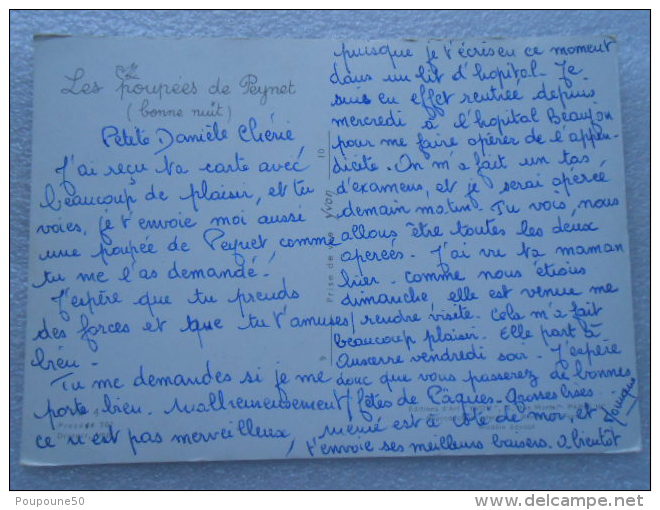 Les poupées de Peynet
(bonne nuit)
Petite Danièle Chérie
J'ai reçu ta carte avec
beaucoup de plaisir, et tu
voies, je t'envoie moi aussi
une poupée de Peynet comme
tu me l'as demandé.
J'espère que tu prends
des forces et que tu t'amuses
bien.
Tu me demandes si je me
porte bien. Malheureusement
ce n'est pas merveilleux,
puisque je t'écris en ce moment
dans un lit d'hopital. Je
suis en effet rentrée depuis
mercredi à l'hopital Beaujon
pour me faire opérer de l'appen-
dicite. On m'a fait un tas
d'examens, et je serai opérée
demain matin. Tu vois, nous
allons être toutes les deux
opérées. J'ai vu ta maman
hier. Comme nous étions
dimanche, elle est venue me
rendre visite. Cela m'a fait
beaucoup plaisir. Elle part à
Auxerre vendredi soir. J'espère
donc que vous passerez de bonnes
fêtes de Pâques. Grosses bises
Mémé est à côté de moi, et
t'envoie ses meilleurs baisers. A bientôt
Monique
10
Prise de vue Yvon
Poupoune50
delcampe.net